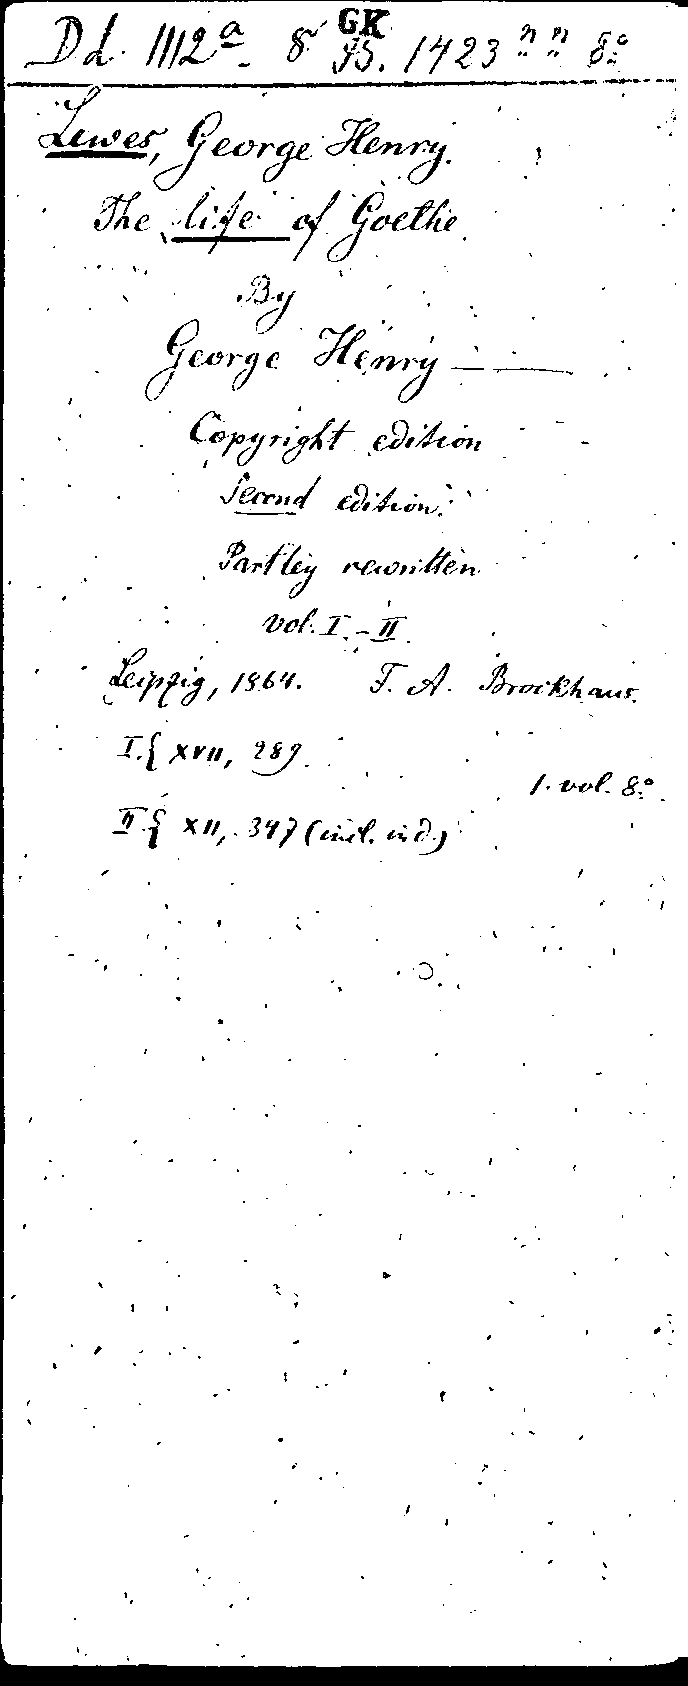 GK
Dd. 1112ª 8° 95. 1423 n n 8°
Lewes, George Henry.
The life of Goethe
By
George Henry —
Copyright edition
Second edition.
Partley rewritten
vol. I - II
Leipzig, 1864. F. A. Brockhaus.
I.{ XVII, 289.
1. vol. 8°
II.{ XII, 347 (incl. ind)